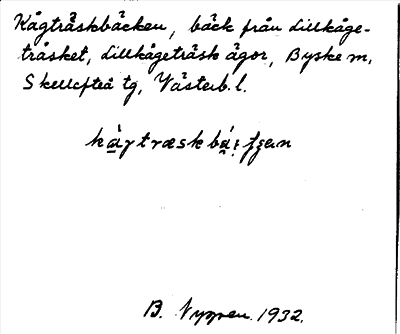 Kågträskbäcken, bäck från Lillkåge-
träsket, Lillkågeträsk ägor, Byske m,
Skellefteå tg, Västerb. l.
B. Nygren 1932.